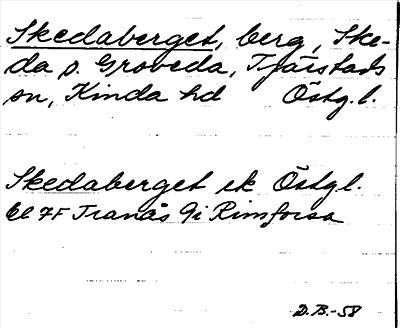 Skedaberget, berg, Ske-
da p. Groveda, Tjärstads
sn, Kinda hd Östg.l.
Skedaberget ek Östgl.
bl 7F Tranås 9i Rimforsa
D.B.-58